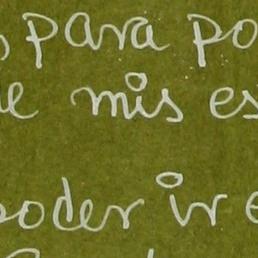 para po
mis es
poder ir e